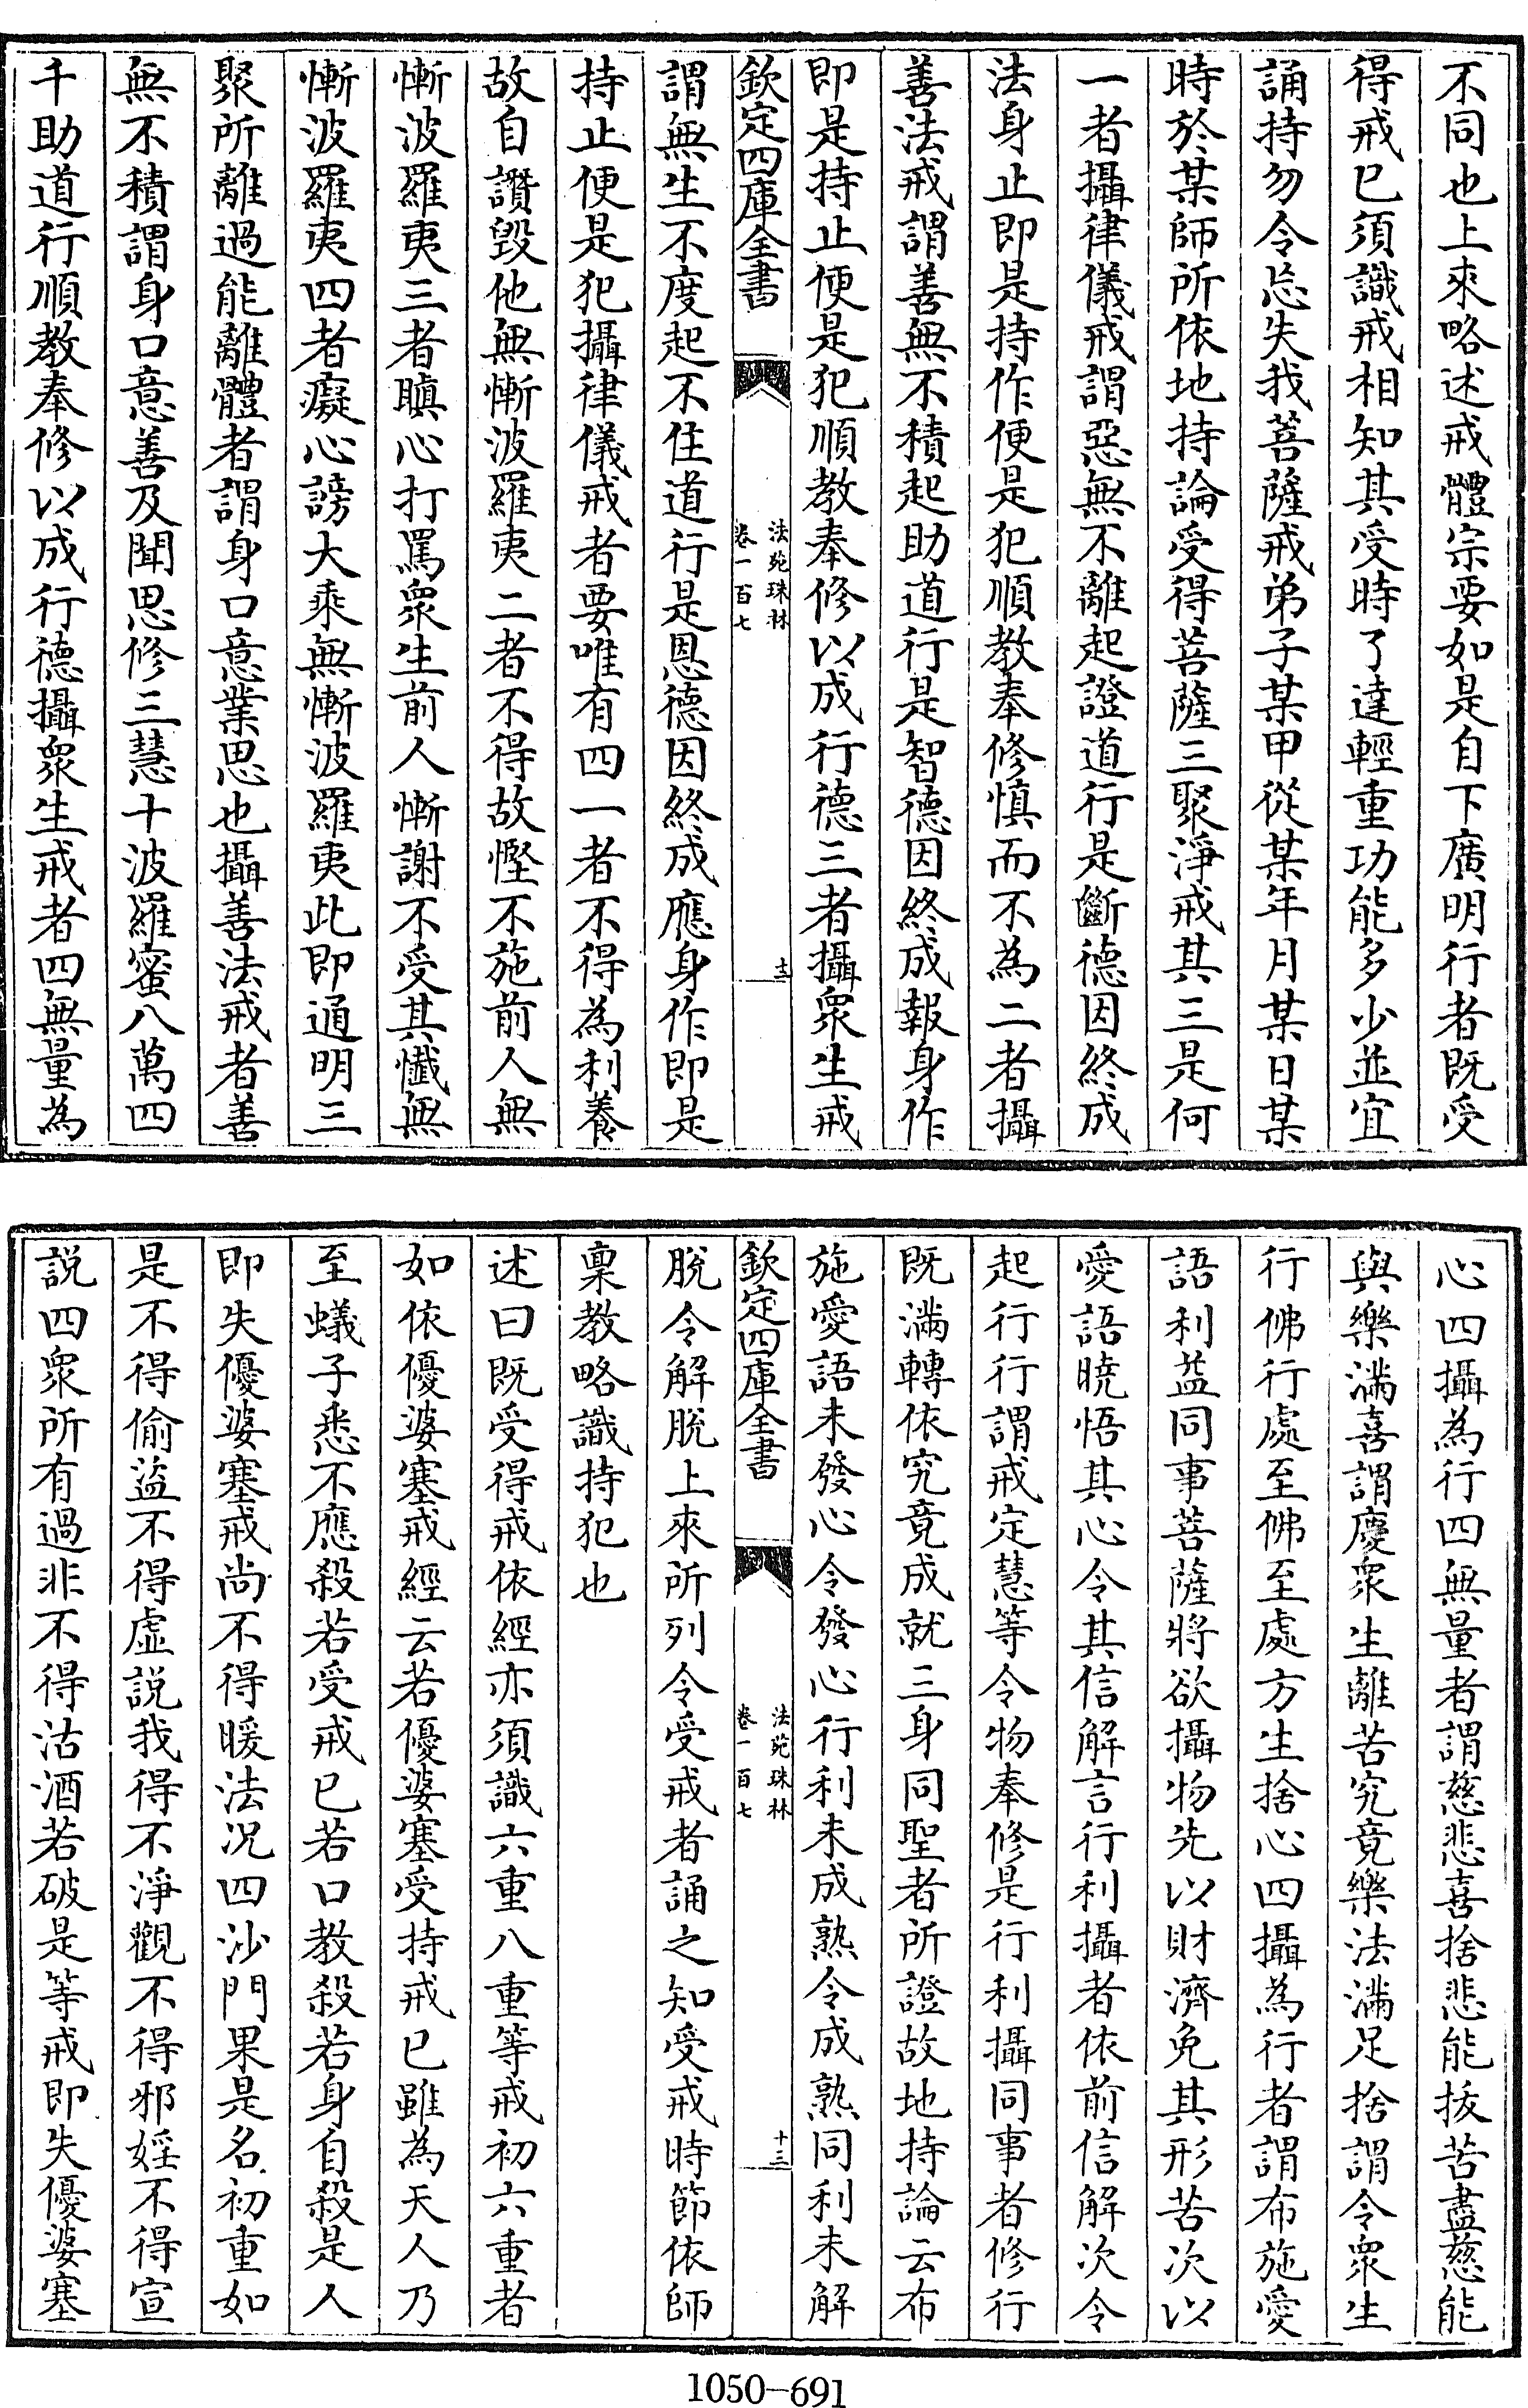 不同也上來略述戒體宗要如是自下廣明行者既受
得戒已須識戒相知其受時了達輕重功能多少並宜
誦持勿令忘失我菩薩戒弟子某甲從某年月某日某
時於某師所依地持論受得菩薩三聚淨戒其三是何
一者攝律儀戒謂惡無不離起證道行是斷德因終成
法身止即是持作便是犯順教奉修慎而不為二者攝
善法戒謂善無不積起助道行是智德因終成報身作
即是持止便是犯順教奉修以成行德三者攝衆生戒
欽定四庫全書
法苑珠林
卷一百七
十二
謂無生不度起不住道行是恩德因終成應身作即是
持止便是犯攝律儀戒者要唯有四一者不得為利養
故自讚毀他無慚波羅夷二者不得故慳不施前人無
慚波羅夷三者瞋心打罵衆生前人慚謝不受其懺無
慚波羅夷四者癡心謗大乘無慚波羅夷此即通明三
聚所離過能離體者謂身口意業思也攝善法戒者善
無不積謂身口意善及聞思修三慧十波羅蜜八萬四
千助道行順教奉修以成行德攝衆生戒者四無量為
心四攝為行四無量者謂慈悲喜捨悲能拔苦盡慈能
與樂滿喜謂慶衆生離苦究竟樂法滿足捨謂令衆生
行佛行處至佛至處方生捨心四攝為行者謂布施愛
語利益同事菩薩將欲攝物先以財濟免其形苦次以
愛語曉悟其心令其信解言行利攝者依前信解次令
起行行謂戒定慧等令物奉修是行利攝同事者修行
既滿轉依究竟成就三身同聖者所證故地持論云布
施愛語未發心令發心行利未成熟令成熟同利未解
欽定四庫全書
法苑珠林
卷一百七
十三
脫令解脫上來所列令受戒者誦之知受戒時節依師
稟教略識持犯也
述曰既受得戒依經亦須識六重八重等戒初六重者
如依優婆塞戒經云若優婆塞受持戒已雖為天人乃
至蟻子悉不應殺若受戒已若口教殺若身自殺是人
即失優婆塞戒尚不得暖法况四沙門果是名初重如
是不得偷盜不得虛説我得不淨觀不得邪婬不得宣
説四衆所有過非不得沽酒若破是等戒即失優婆塞
1050-691